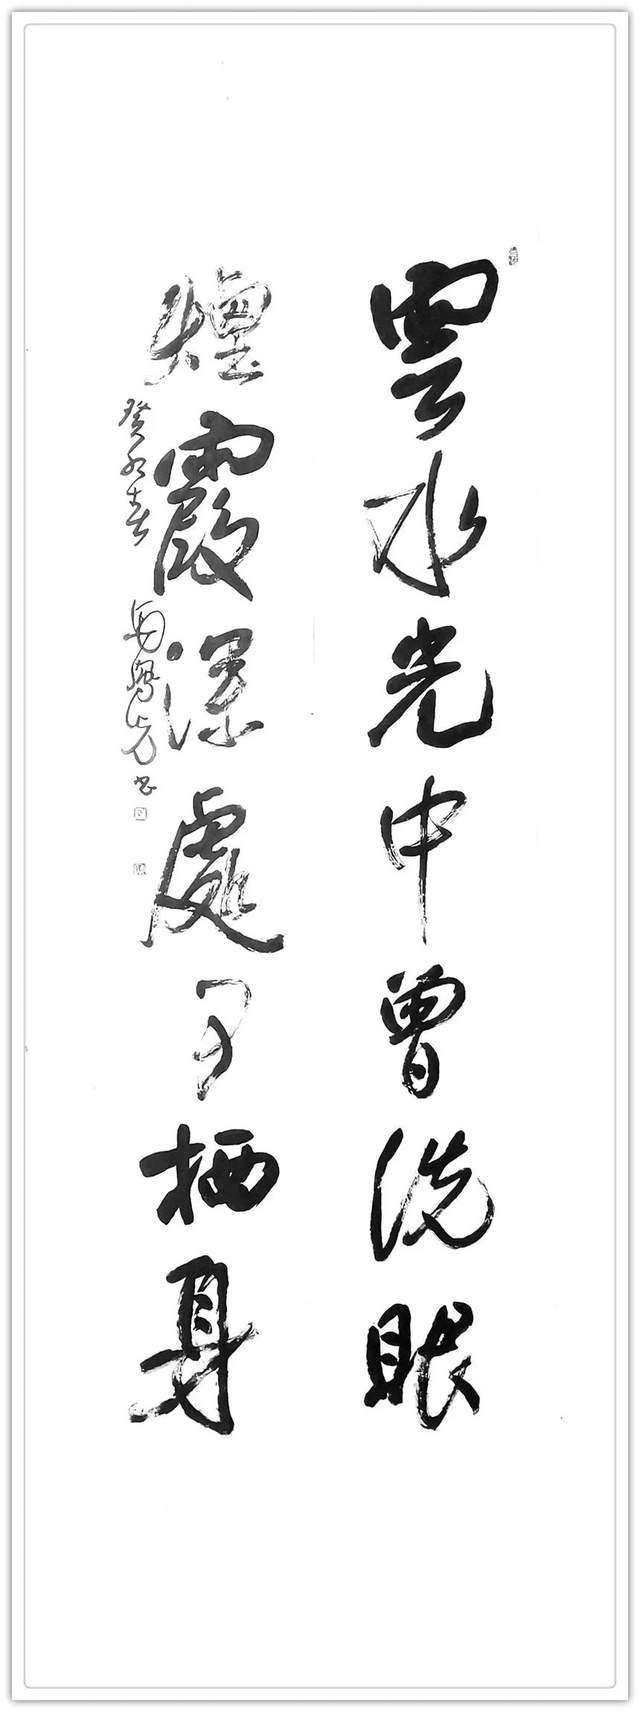 雲水光中曾洗眼
煙霞深處可栖身
癸卯春
書